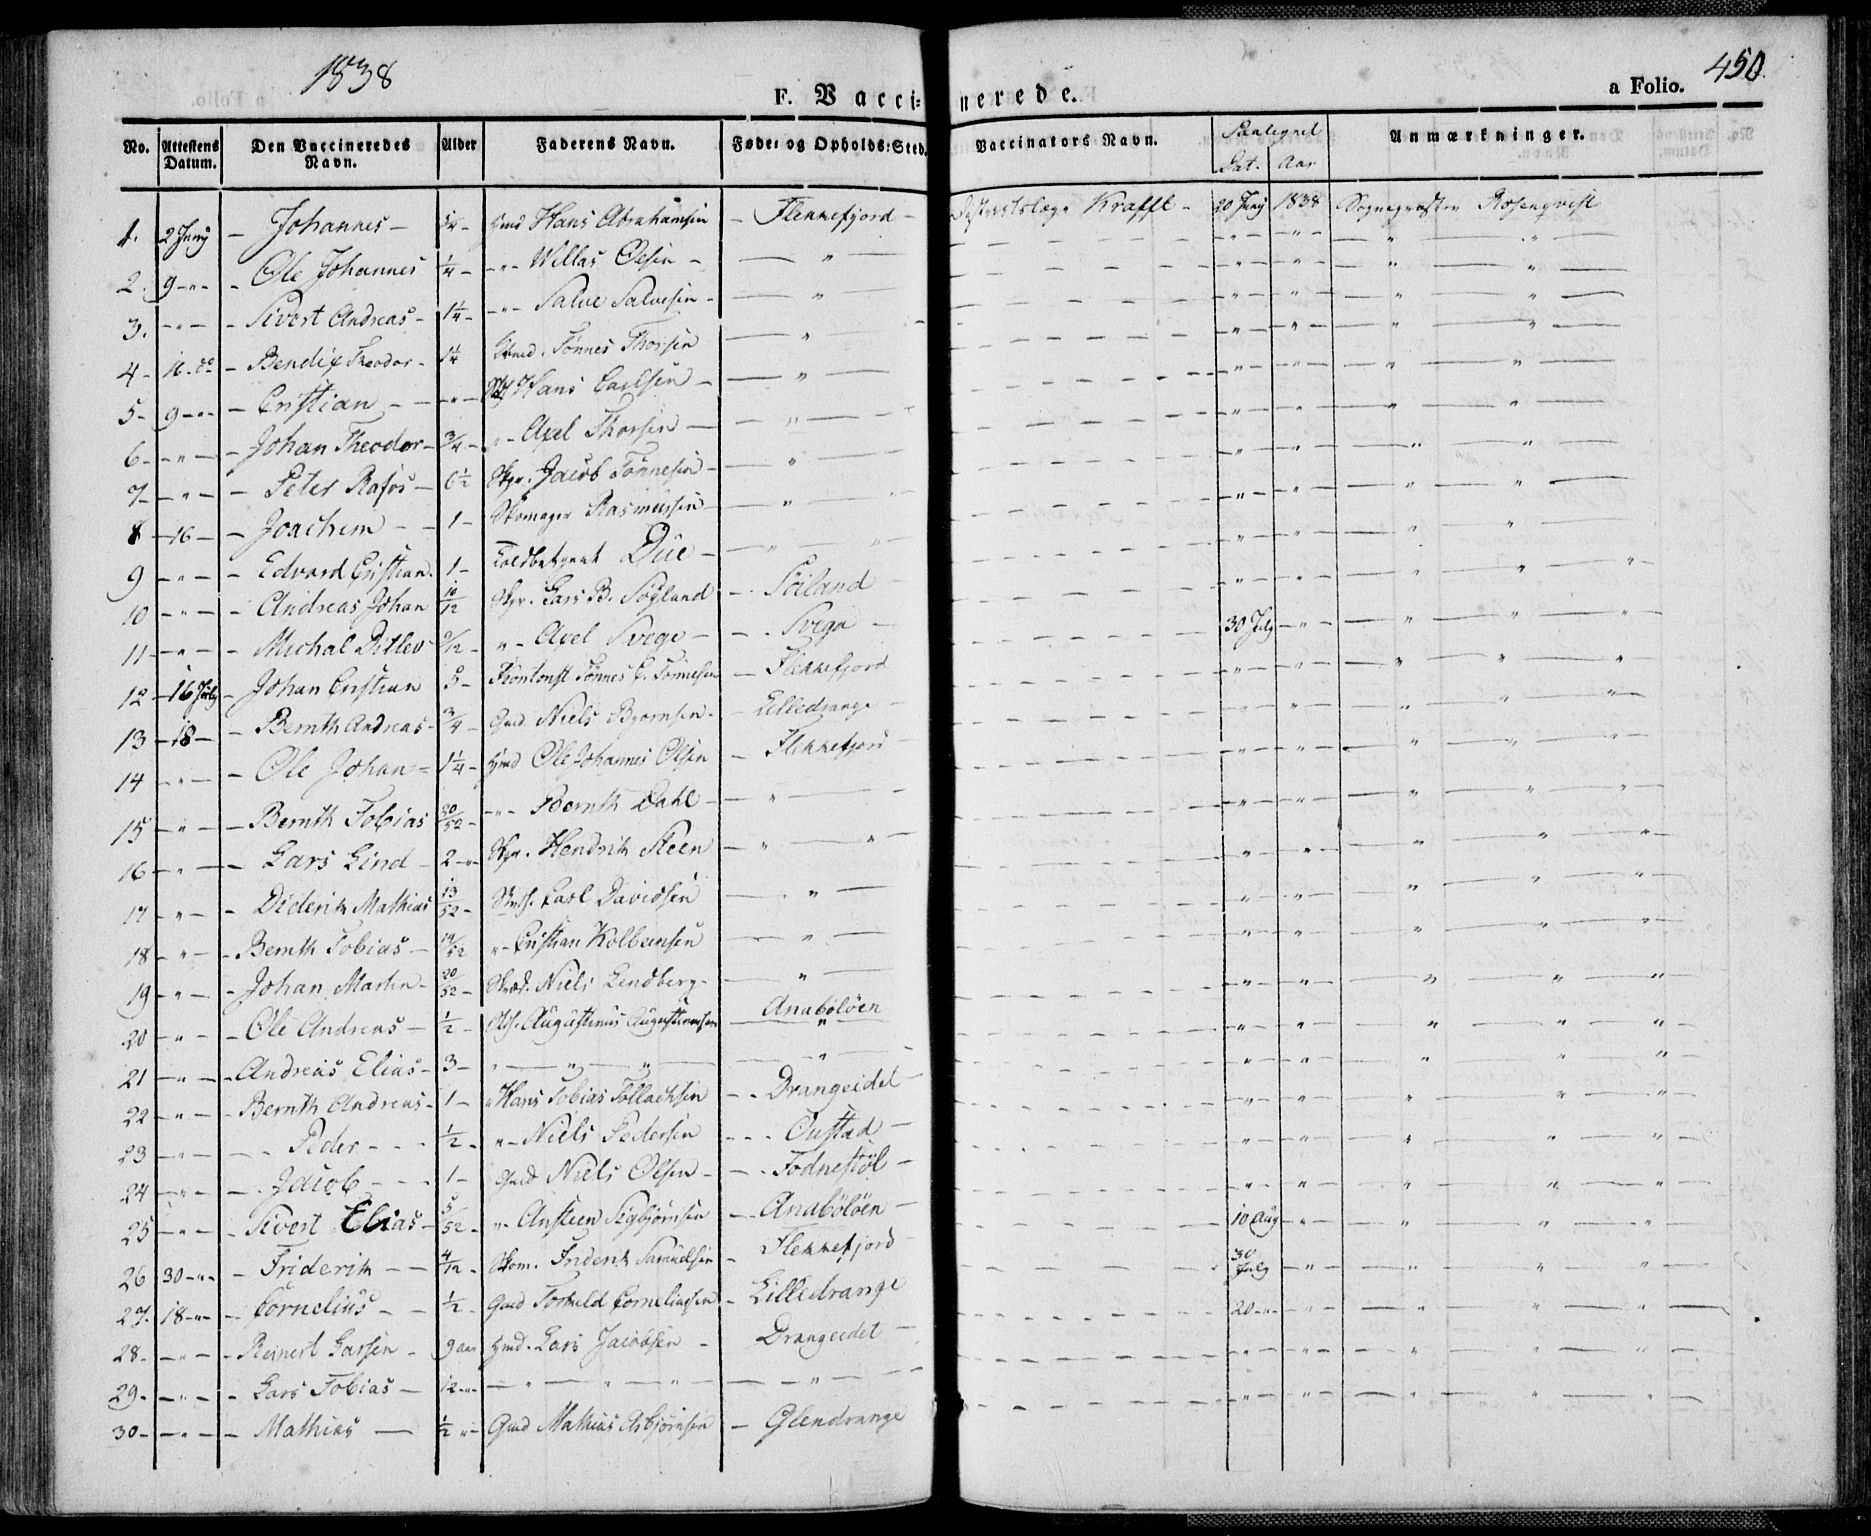 1838
450.
F. Vaccinerede.
a Folio.
No. Attestens Datum. Den Vaccineredes Navn. Alder Faderens Navn. Føde- og Opholds-Sted. Vaccinators Navn. Paategnet Dat. Aar Anmærkninger.
1. 2 Juny - Johannes - Hans Abrahamsen - Flekkefjord - Krafft - 20 Juny 1838 Rosenqvist
2. 9 -"- - Ole Johannes 1/4 - -"- Willas Olsen - — " —
3. -"- - Sivert Andreas - 1 1/4 - -"- Salve Salvesen - — " —
4 - - Bendix Theodor - 1 1/4 Tønnes Thorsen — " —
5 - 9 -"- - Cristian - -"- Hans Carlsen - — " —
6 - -"- - Johan Theodor - 3/4 - "- Axel Thorsen — — " —
7 - -"- - Peter Rafos - 6 1/2 Skpr. Jacob Tønnesen - — " —
8 - 16 - - Joachim - - 1 - Skomager Rasmussen - — " —
9 -"- - Edvard Cristian. 1 - Toldbetjent Düe - — " — "
10 -"- - Andreas Johan 10/12 Skpr. Lars B. Søyland - - Söiland
11 -"- - Michal Ditlev 9/12 - "- Axel Svege - - - Svega - 30 July -"-
12 - 16 July - Johan Cristian 5 - Tønnes C. Tønnesen - Flekkefjord
13 - 18 - - Bernth Andreas - 3/4 - Gmd. Niels Bjørnsen - - Lilledrange -
14 -"- - Ole Johan - 1 1/4 - Hmd Ole Johannes Olsen - Flekkefjord
15 -"- - Bernth Tobias 20/52 - -"- Bernth Dahl - — " —
16 -"- - Lars Lind - 2 -"- Skpr. Hendrik Steen — " — "
17 -"- - Diderik Mathias 13/52 - Carl Davidsen — " —
18 -"- - Bernth Tobias - 14/52 "- Cristian Kolbensen — " —
19 -"- - Johan Martin - 20/52 - Skræd. Niels Lindberg - — " —
20 -"- - Ole Andreas - 1/2 - Augustinus Augustinussen Anabölöen
21 -"- - Andreas Elias - 3 - " — " — " — — " —
22 -"- - Bernth Andreas - 1 - " Hans Tobias Tollachsen - - Drangeidet -
23 -"- - - Peder - - - 1/2 - "- Niels Pedersen - - - Oustad -
24 -"- - Jacob - - - 1 - Gmd Niels Olsen - - - Fodnestöl -
25 -"- - Sivert Elias - 5/52 - "- Ansteen Sigbjørnsen - - Anabölöen - 10 Aug -"-
26 30 -"- - Friderik - - 4/12 - Skom. Friderik Samuelsen - Flekkefjord - 30 July -"-
27. 18 -"- - Cornelius - - 1/2 - Gmd Torkild Corneliussen - Lilledrange 20 -"-
28 - -"- - Reinert Larsen - 9 aar Hmd. Lars Jacobsen - Drangeidet -
29 - -"- - Lars Tobias - 12 -"- — " — " — " — — " —
30 - -"- - Mathias — 1/2 -"- Gmd Mathias Asbjørnsen - Glendrange